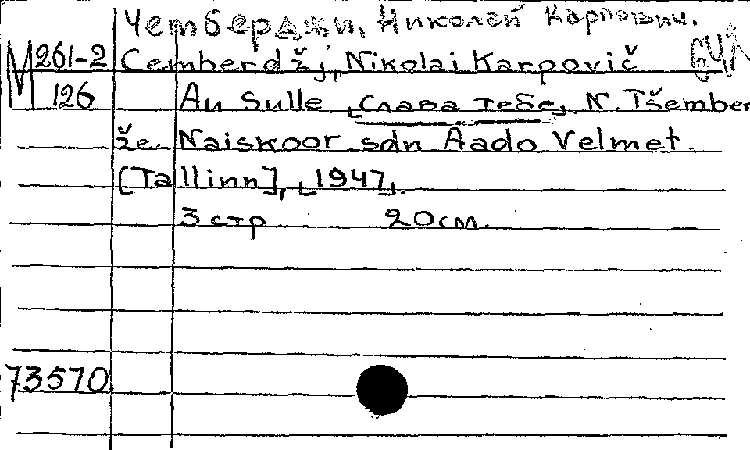 Чемберджи, Николай Карпович.
М 261-2 Čemberdži, Nikolai Karpovič
126 Au Sulle [Слава тебе], N. Tšember
že. Naiskoor sdn Aado Velmet.
[Tallinn], [1947].
3 стр 20 см.
73570